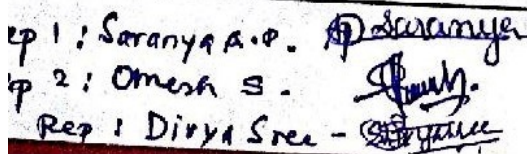 ep 1 : Saranya A.P. Saranya
p 2 : Omesh S.
Rep : Divya Sree -